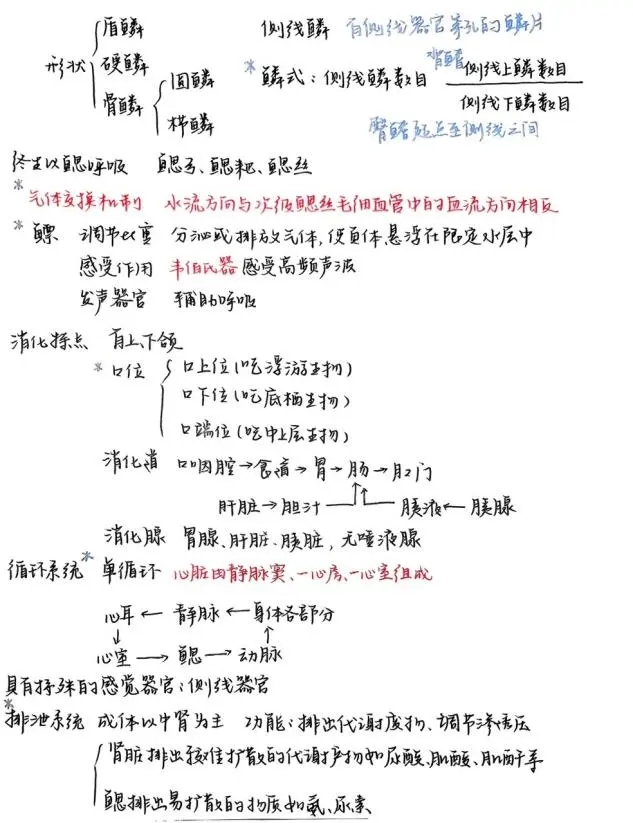 形状 盾鳞
硬鳞
骨鳞 圆鳞
栉鳞
侧线鳞 有侧线器官穿孔的鳞片
*鳞式：侧线鳞数目 背鳍 侧线上鳞数目
侧线下鳞数目
臀鳍起点至侧线之间
终生以鳃呼吸 鳃弓、鳃耙、鳃丝
*气体交换机制 水流方向与次级鳃丝毛细血管中的血流方向相反
*鳔 调节比重 分泌或排放气体，使鱼体悬浮在限定水层中
感受作用 韦伯氏器感受高频声波
发声器官 辅助呼吸
消化特点 有上下颌
*口位 口上位(吃浮游生物)
口下位(吃底栖生物)
口端位(吃中上层生物)
消化道 口咽腔→食道→胃→肠→肛门
肝脏→胆汁 胰液←胰腺
消化腺 胃腺、肝脏、胰脏，无唾液腺
循环系统 *单循环 心脏由静脉窦、一心房、一心室组成
心耳←静脉←身体各部分
心室→鳃→动脉
具有特殊的感觉器官：侧线器官
*排泄系统 成体以中肾为主 功能：排出代谢废物、调节渗透压
肾脏排出较难扩散的代谢产物如尿酸、肌酸、肌酐等
鳃排出易扩散的物质如氨、尿素